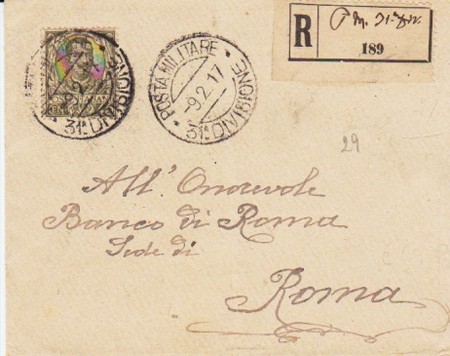 31ª DIVISIONE
POSTA MILITARE
9.2.17
31ª DIVISIONE
R
P. M. 31ª Div.
189
29
All' Onorevole
Banco di Roma
Sede di
Roma